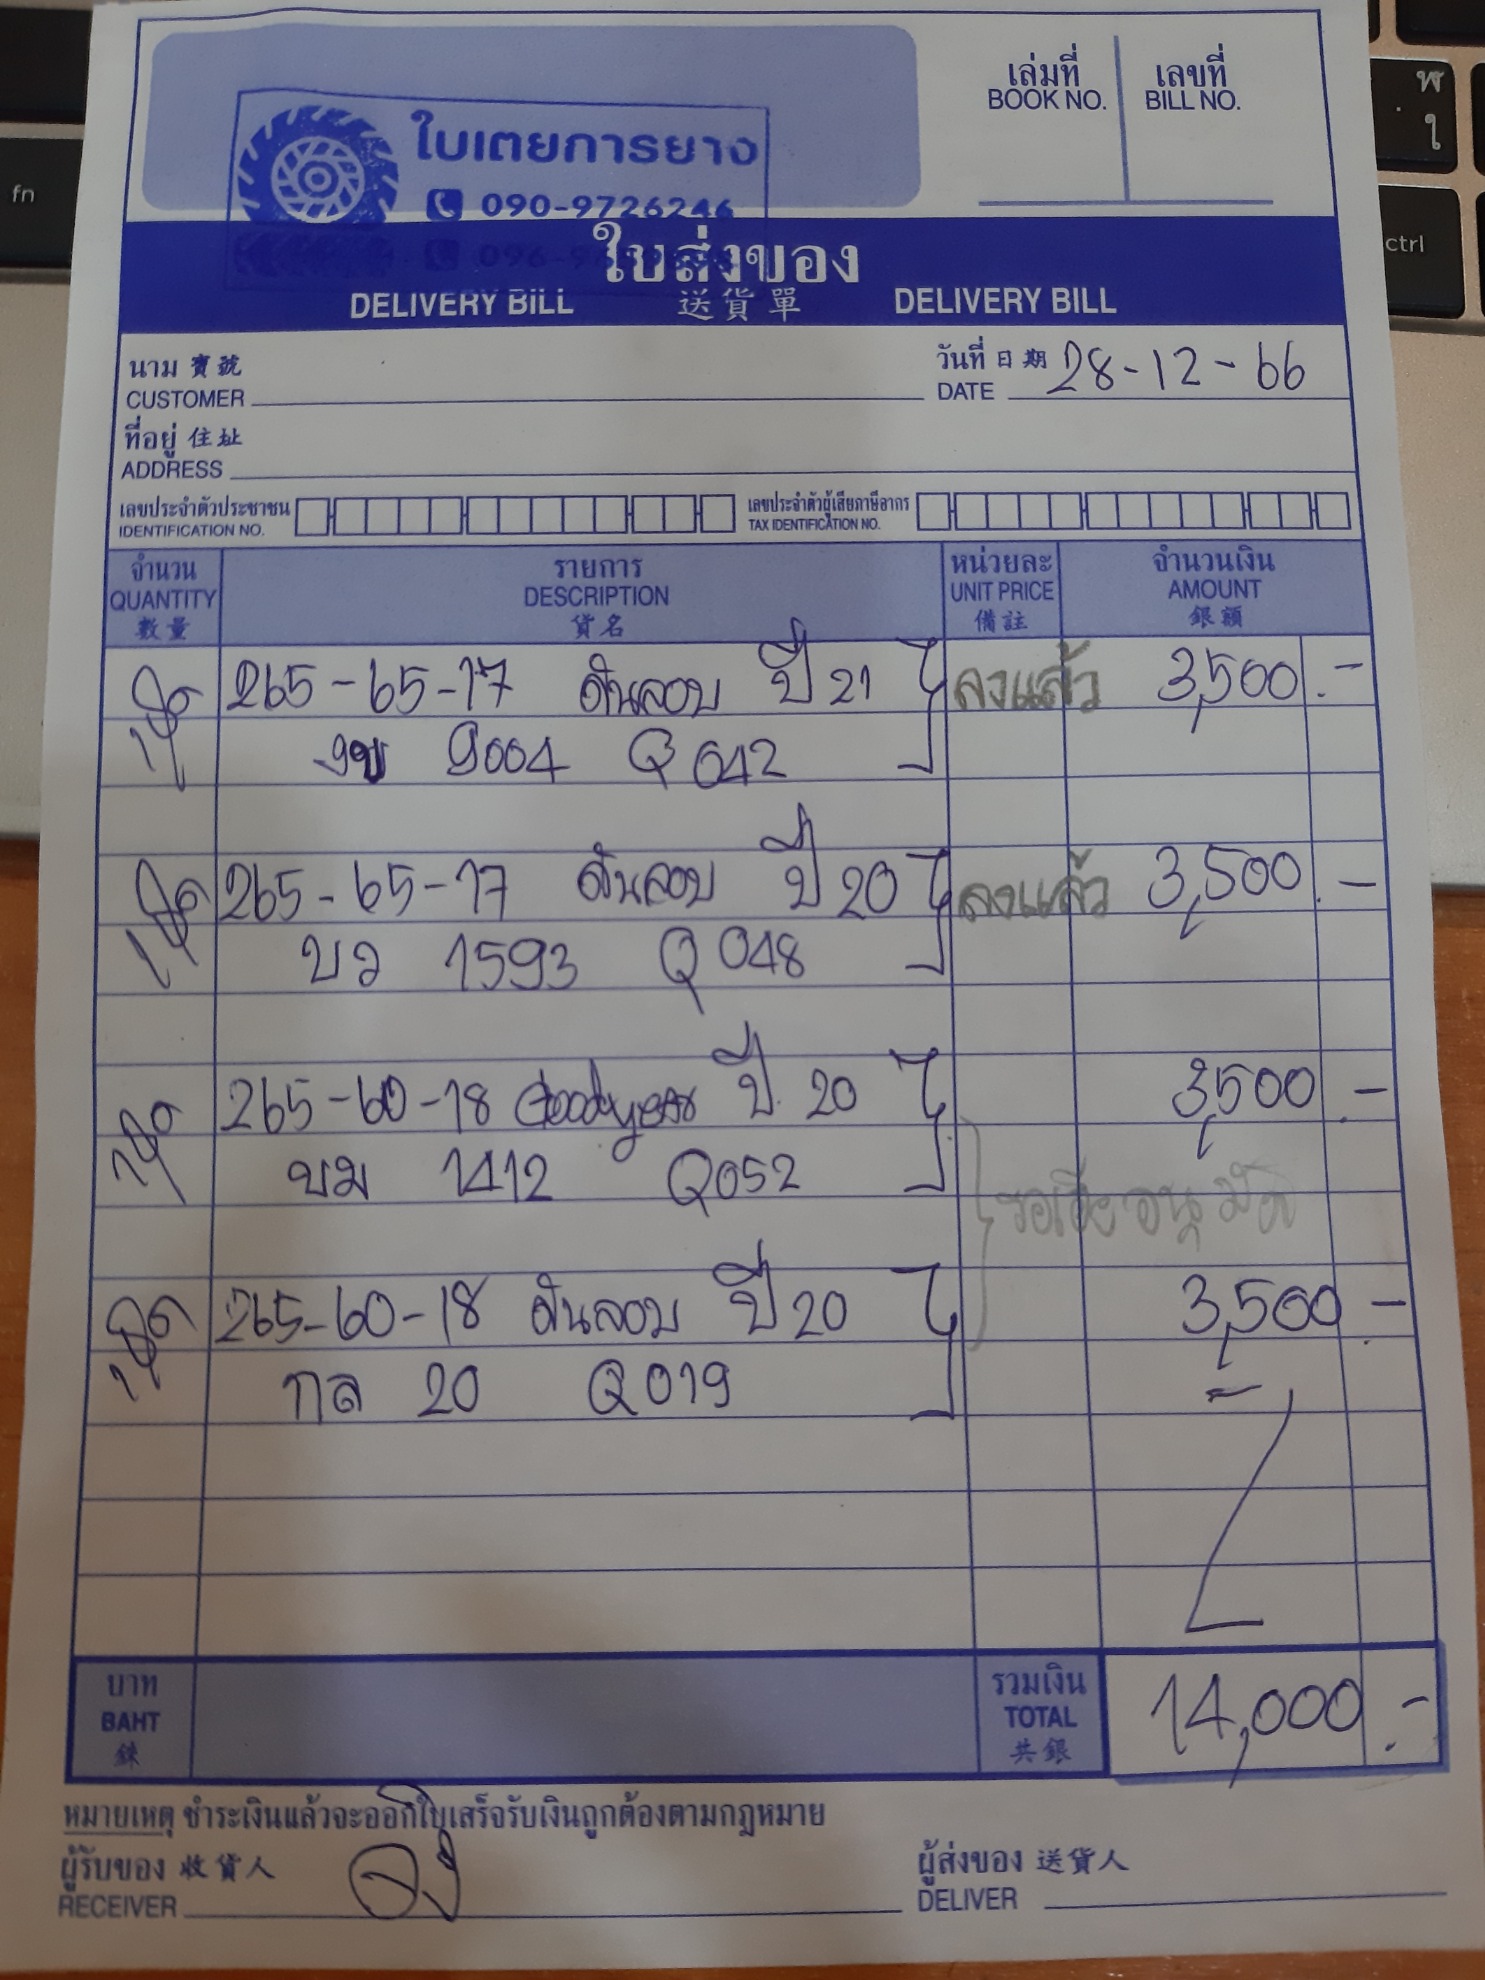 เล่มที่ เลขที่
BOOK NO. BILL NO.
ใบเตยการยาง
090-9726246
ใบส่งของ
DELIVERY BILL 送貨單 DELIVERY BILL
นาม 寶號 วันที่ 日期 28-12-66
CUSTOMER DATE
ที่อยู่ 住址
ADDRESS
เลขประจำตัวประชาชน เลขประจำตัวผู้เสียภาษีอากร
IDENTIFICATION NO. TAX IDENTIFICATION NO.
จำนวน รายการ หน่วยละ จำนวนเงิน
QUANTITY DESCRIPTION UNIT PRICE AMOUNT
數量 貨名 備註 銀額
265-65-17 ดันลอบ ปี 21 ลงแล้ว 3,500.-
9004 Q042
265-65-17 ดันลอบ ปี 20 ลงแล้ว 3,500.-
บว 1593 Q048
265-60-18 Goodyear ปี 20 3,500.-
ขม 1412 Q052
265-60-18 ดันลอบ ปี 20 3,500.-
กล 20 Q019
บาท รวมเงิน
BAHT TOTAL 14,000.-
銖 共銀
หมายเหตุ ชำระเงินแล้วจะออกใบเสร็จรับเงินถูกต้องตามกฎหมาย
ผู้รับของ 收貨人 ผู้ส่งของ 送貨人
RECEIVER DELIVER
fn
ctrl